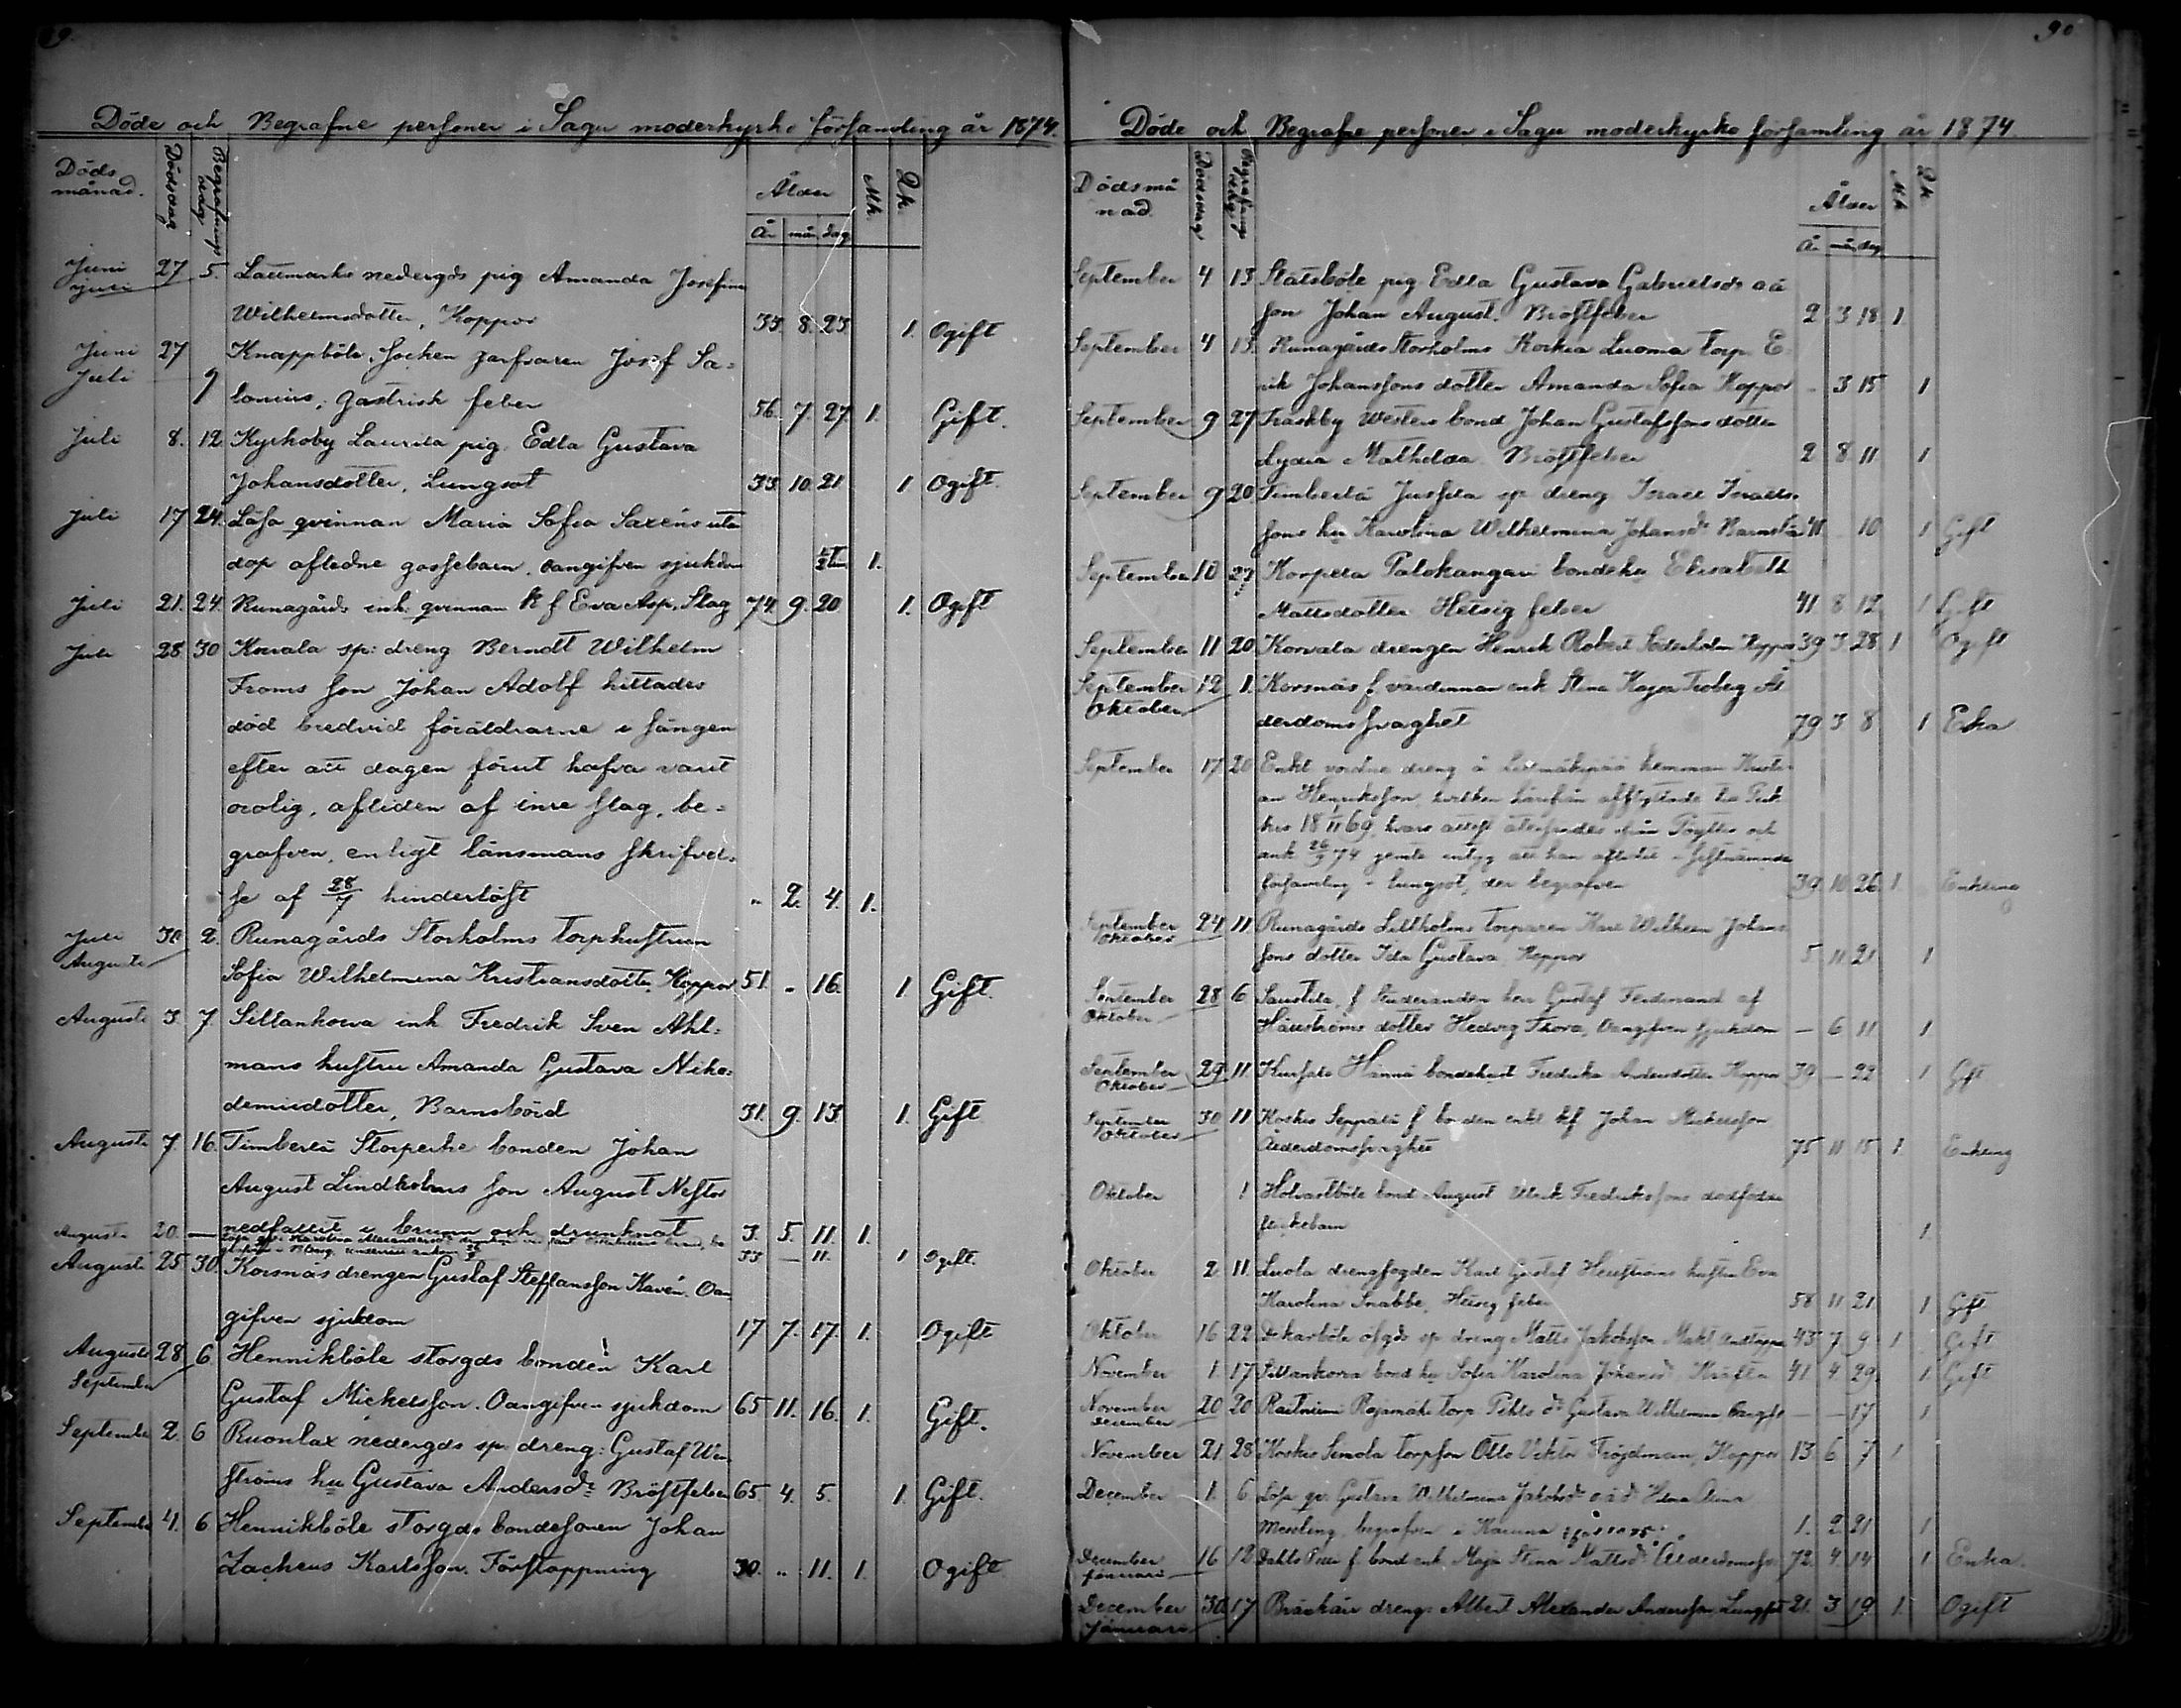 Döde och Begrafne personer i Sagu moderkyrko församling år 1874.
Döds månad. Dödsdag Begrafningsdag Ålder Mk. Qk.
År mån. dag
Juni 27 5. nedergds pig Amanda Josefina
Juli
Wilhelmsdotter, Koppor 33. 8. 23. 1. Ogift
Juni 27 Knappböle, Socken Josef Sa=
Juli 9
lonius, gastrisk feber 56. 7. 27. 1. Gift.
Juli 8. 12 Kyrkoby Laurila pig. Edla Gustava
Johansdotter, Lungsot 33 10. 21 1 Ogift.
Juli 17 24. Lösa qvinnan Maria Sofia Saxéns utan
dop aflidne gossebarn, oangifven sjukdom 1.
Juli 21. 24. Runagårds inh. qvinnan Eva Asp, Slag 74. 9. 20 1. Ogift
Juli 28 30 sp: dreng Berndt Wilhelm
Froms son Johan Adolf hittades
död bredvid föräldrarne i sängen
efter att dagen förut hafva varit
orolig, afliden af inre slag, be=
grafven, enligt länsmans skrifvel=
se af 28/7 hinderlöst " 2. 4. 1.
Juli 30. 2. Runagårds Storholms torphustrun
Augusti
Sofia Wilhelmina Kristiansdotter, Koppor 51. " 16. 1 Gift.
Augusti 3. 7. Sillankorva inh Fredrik Sven Ahl=
mans hustru Amanda Gustava Niko=
demusdotter, Barnsbörd 31. 9. 13. 1. Gift
Augusti 7. 16. Timberlä Storperhe bonden Johan
August Lindholms son August Nestor
nedfallit i brunn och drunknat 3. 5. 11. 1.
Augusti 20. — Karolina 33 — 11. 1 Ogift.
Augusti 25 30. Korsnäs drengen Gustaf Steffansson Oan
gifven sjukdom 17 7. 17. 1. Ogift
Augusti 28 6. Hennikböle storgds bonden Karl
September
Gustaf Mickelsson. Oangifven sjukdom 65 11. 16. 1. Gift.
September 2. 6 Ruonlax nedergds sp. dreng: Gustaf
ströms hu Gustava Andersdr Bröstfeber 65. 4. 5. 1. Gift.
September 4. 6 Hennikböle storgds bondesonen Johan
Zacheus Karlsson. Förstoppning 30. " 11. 1. Ogift
90
Döde och Begrafne personer i Sagu moderkyrko församling år 1874.
Dödsmånad. Dödsdag Begrafningsdag Ålder Mk Qk.
År mån dag
September 4 13 pig Edla Gustava Gabrielsdr
son Johan August. Bröstfeber 2 3 18 1.
September 4 13. Runagårds Storholms Luoma torp. E
rik Johanssons dotter Amanda Sofia Koppor - 3 15 1
September 9 27 Träskby Westers bond Johan Gustafssons dotter
Lydia Mathilda. Bröstfeber 2 8 11. 1
September 9 20 Timberlä Jussila sp dreng Israel Israels
sons hu Karolina Wilhelmina Johansdr 41 - 10 1 Gift
September 10 27 Korpela bondehu Elisabeth
Mattsdotter Hetsig feber 41. 8 12 1 Gift
September 11 20 Korvala drengen Henrik Robert Söderholm Koppor 39 3 28 1 Ogift
September 12 1. Korsnäs f. värdinnan enk Stina Kajsa Ål
Oktober
derdomssvaghet 79 3 8 1 Enka
September 17 20 dreng å hemman
Henriksson, hvilken härifrån
18 11/69, från Pöytis och
ank 26/9 74
församling i lungsot, der begrafven 39. 10 26. 1. Enkling
September 24 11 Runagårds Lillholms torparen Karl Wilhelm Johans
Oktober
sons dotter Ida Gustava. Koppor 5 11 21 1
September 28 6 f. Studeranden herr Gustaf Ferdinand af
Oktober
dotter Hedvig Thora, Oangifven sjukdom — 6 11 1
September 29 11 Fredrika Andersdotter Koppor 39 — 22 1 Gift
Oktober
September 30 11 Koskis Seppälä f bonden enkl Johan Mickelsson
Oktober
Ålderdomssvaghet 75 11 15 1. Enkling
Oktober 1 bond August Ulrik Fredrikssons dödfödde
flickebarn 1.
Oktober 2 11. Luola drengfogden Karl Gustaf hustru Eva
Karolina Snabbe, Hetsig feber 58 11 21 1. Gift
Oktober 16 22 sp dreng Matts Jakobsson 43 7 9 1 Gift
November 1. 17 Sillankorva bond hu Sofia Karolina Johansdr Kräfta 41 4 29. 1. Gift
November 20 20 Raitniemi torp. dr Gustava Wilhelmina — — 17 1
December
November 21. 28 Koskis Simola torpson Otto Viktor Fröjdman, Koppor 13 6 7 1
December 1. 6 Lösa qv. Gustava Wilhelmina Jakobsdr Hilma Alina
Messling, begrafven i Karuna 1. 2 21 1
December 16 12 f bond enk Maja Stina Mattsdr Ålderdomssv 72. 4. 14 1 Enka.
Januari
December 30 17 drengs Albert Alexander Andersson, Lungsot 21. 3 19 1. Ogift
Januari